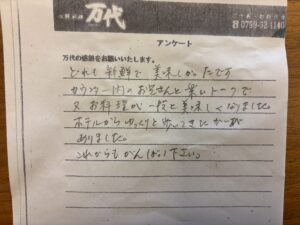 万代
☎ 0739-32-1140
アンケート
万代の感想をお願いいたします。
どれも新鮮で美味しかったです
カウンター内のお兄さんと楽しいトークで
又お料理が一段と美味しくなりました。
ホテルからゆっくりと歩いてきたかいが
ありました。
これからもがんばって下さい。